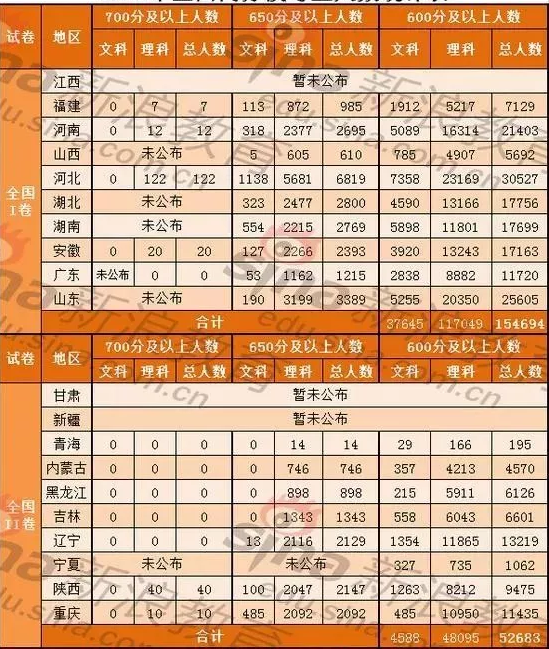 试卷 地区 700分及以上人数 650分及以上人数 600分及以上人数
文科 理科 总人数 文科 理科 总人数 文科 理科 总人数
全国I卷
江西 暂未公布
福建 0 7 7 113 872 985 1912 5217 7129
河南 0 12 12 318 2377 2695 5089 16314 21403
山西 未公布 5 605 610 785 4907 5692
河北 0 122 122 1138 5681 6819 7358 23169 30527
湖北 未公布 323 2477 2800 4590 13166 17756
湖南 未公布 554 2215 2769 5898 11801 17699
安徽 0 20 20 127 2266 2393 3920 13243 17163
广东 未公布 0 0 53 1162 1215 2838 8882 11720
山东 未公布 190 3199 3389 5255 20350 25605
合计 37645 117049 154694
试卷 地区 700分及以上人数 650分及以上人数 600分及以上人数
文科 理科 总人数 文科 理科 总人数 文科 理科 总人数
全国II卷
甘肃 暂未公布
新疆 暂未公布
青海 0 0 0 0 14 14 29 166 195
内蒙古 0 0 0 0 746 746 357 4213 4570
黑龙江 0 0 0 0 898 898 215 5911 6126
吉林 0 0 0 0 1343 1343 558 6043 6601
辽宁 0 0 0 13 2116 2129 1354 11865 13219
宁夏 未公布 未公布 327 735 1062
陕西 0 40 40 100 2047 2147 1263 8212 9475
重庆 0 10 10 485 2092 2092 485 10950 11435
合计 4588 48095 52683
sina新浪教育
edu.sina.com.cn